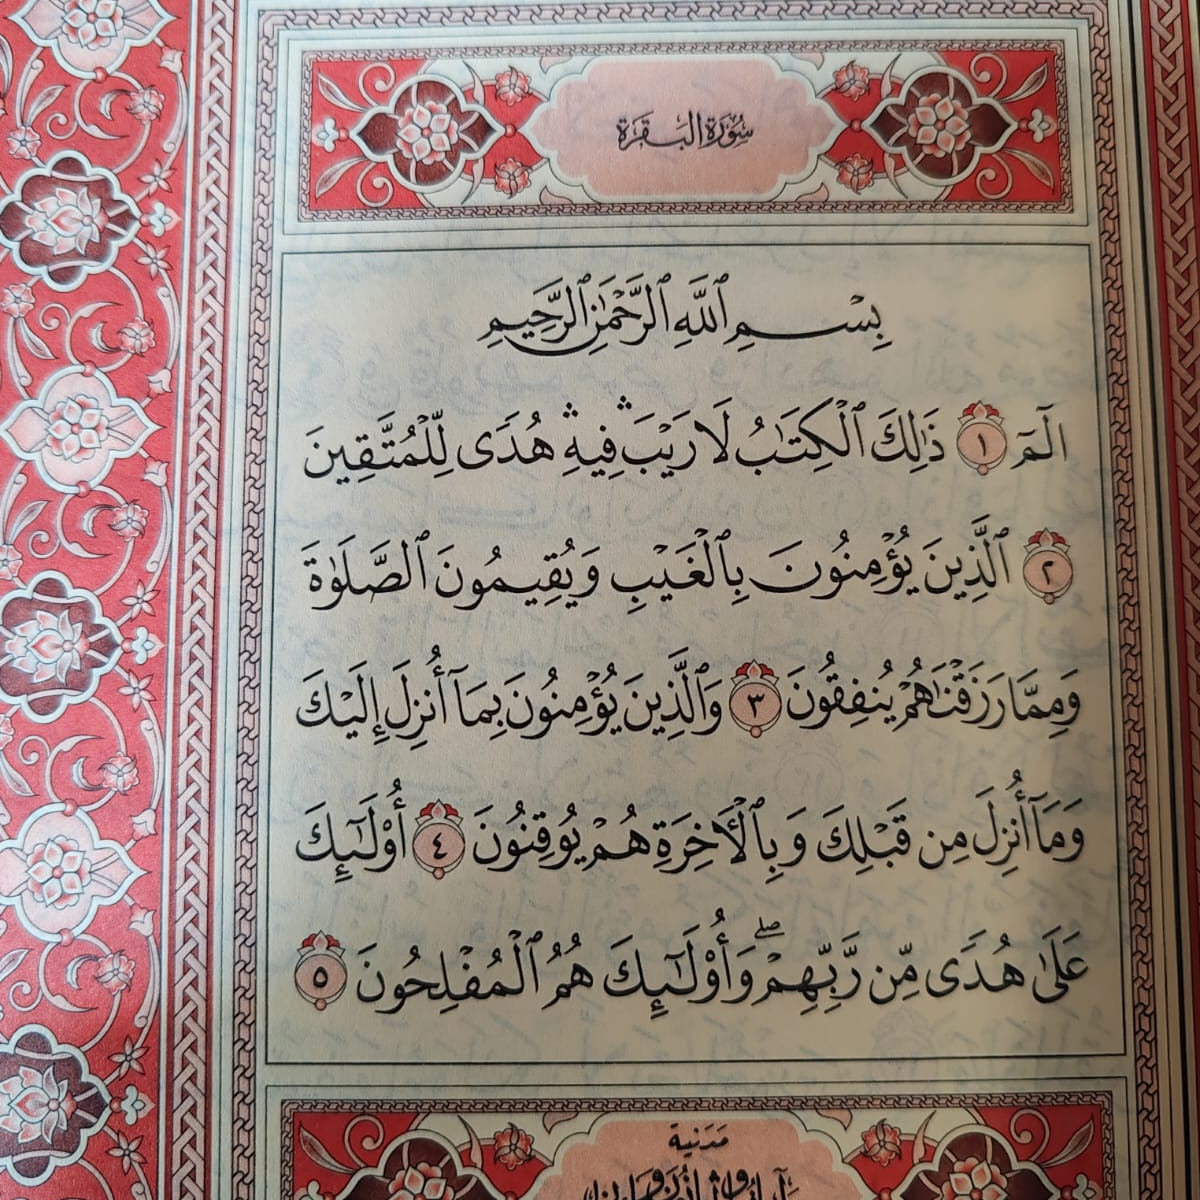 سُورَةُ البَقَرَةِ
بِسْمِ ٱللَّهِ ٱلرَّحْمَٰنِ ٱلرَّحِيمِ
الٓمٓ ١ ذَٰلِكَ ٱلْكِتَٰبُ لَا رَيْبَ ۛ فِيهِ ۛ هُدًى لِّلْمُتَّقِينَ
٢ ٱلَّذِينَ يُؤْمِنُونَ بِٱلْغَيْبِ وَيُقِيمُونَ ٱلصَّلَوٰةَ
وَمِمَّا رَزَقْنَٰهُمْ يُنفِقُونَ ٣ وَٱلَّذِينَ يُؤْمِنُونَ بِمَآ أُنزِلَ إِلَيْكَ
وَمَآ أُنزِلَ مِن قَبْلِكَ وَبِٱلْأَخِرَةِ هُمْ يُوقِنُونَ ٤ أُوْلَٰٓئِكَ
عَلَىٰ هُدًى مِّن رَّبِّهِمْ ۖ وَأُوْلَٰٓئِكَ هُمُ ٱلْمُفْلِحُونَ ٥
مَدَنِيَّة